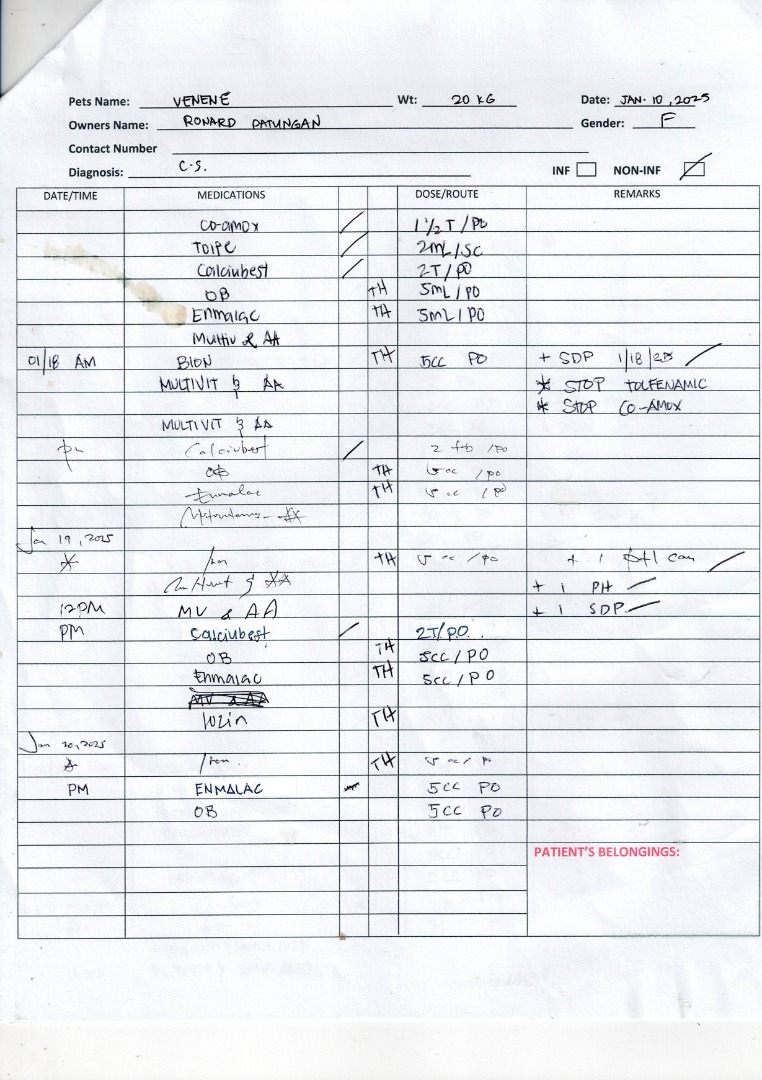 Pets Name: VENENE Wt: 20 KG Date: JAN. 10, 2025
Owners Name: RONARD PATUNGAN Gender: F
Contact Number
Diagnosis: C.S. INF NON-INF
DATE/TIME MEDICATIONS DOSE/ROUTE REMARKS
CO-AMOX 1 1/2 T / PO
TOLFE 2mL / SC
Calciubest 2T / PO
OB TH 5mL / PO
Enmalac TH 5mL / PO
Multiv & AA
01/18 AM BION TH 5CC PO + SDP 1/18/25
MULTIVIT & AA * STOP TOLFENAMIC
* STOP CO-AMOX
MULTIVIT & AA
pm Calciubest 2 tb / PO
OB TH 5 cc / po
Enmalac TH 5 cc / po
Jan 19, 2025
TH 5 cc / po + 1
& AA + 1 PH
12PM MV & AA + 1 SDP
PM Calciubest 2T/PO.
OB TH 5CC / PO
Enmalac TH 5CC / PO
MV & AA
TH
Jan 20, 2025
TH 5 cc / po
PM ENMALAC 5CC PO
OB 5CC PO
PATIENT'S BELONGINGS: